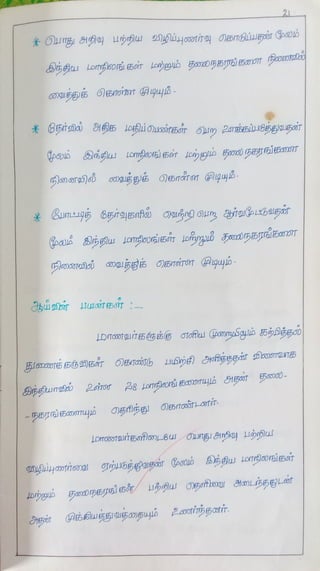 21
* பொது அறிவு பற்றிய விழிப்புணர்வு கொடுப்பதன் மூலம்
இந்திய மாநிலங்கள் மற்றும் தலைநகரங்களை நினைவில்
வைத்துக் கொள்ள முடியும்.
* தேர்வில் அதிக மதிப்பெண்கள் பெற ஊக்கப்படுத்துவதன்
மூலம் இந்திய மாநிலங்கள் மற்றும் தலைநகரங்களை
நினைவில் வைத்துக் கொள்ள முடியும்.
* போட்டித் தேர்வுகளில் வெற்றி பெற ஆர்வமூட்டுவதன்
மூலம் இந்திய மாநிலங்கள் மற்றும் தலைநகரங்களை
நினைவில் வைத்துக் கொள்ள முடியும்.
ஆய்வின் பயன்கள் :-
மாணவர்களுக்கு எளிய முறையிலும் கற்பித்தல்
துணைக்கருவிகள் கொண்டு பயிற்சி அளித்ததன் விளைவாக
இந்தியாவில் உள்ள 28 மாநிலங்களையும் அதன் தலை-
-நகரங்களையும் தெரிந்து கொண்டனர்.
மாணவர்களிடையே பொது அறிவு பற்றிய
விழிப்புணர்வை ஏற்படுத்துவதன் மூலம் இந்திய மாநிலங்கள்
மற்றும் தலைநகரங்கள் பற்றிய தெளிவை அடைந்ததுடன்
அதன் முக்கியத்துவத்தையும் உணர்ந்தனர்.